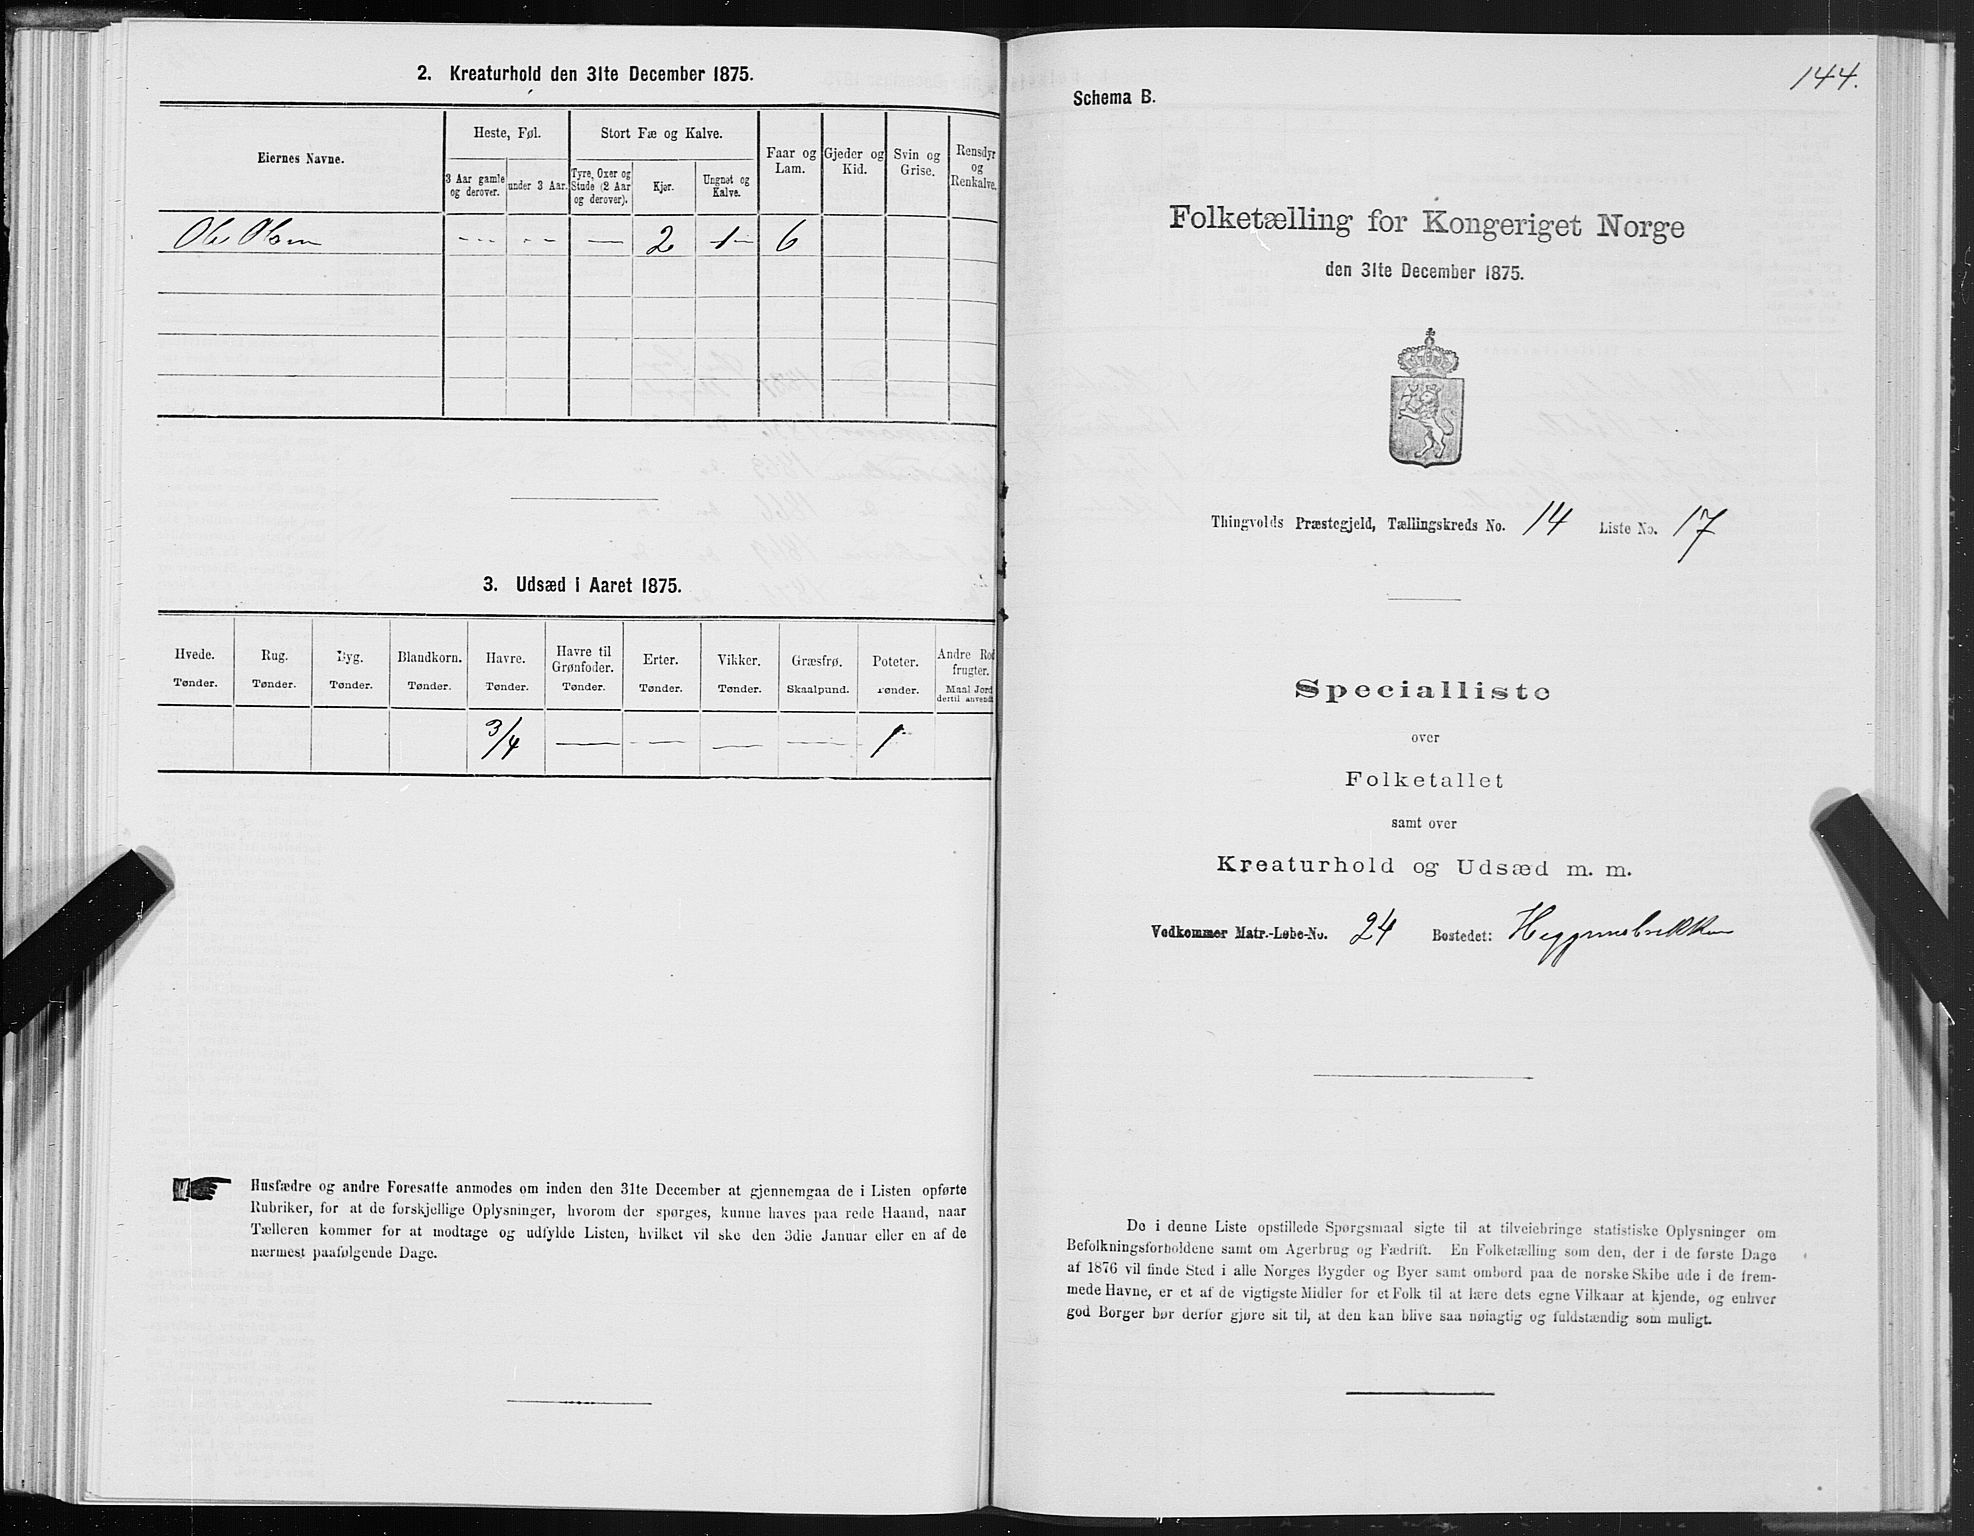 2. Kreaturhold den 31te December 1875.
Eiernes Navne.
Heste, Føl.
Stort Fæ og Kalve.
Faar og Lam.
Gjeder og Kid.
Svin og Grise.
Rensdyr og Renkalve.
3 Aar gamle og derover.
under 3 Aar.
Tyre, Oxer og Stude (2 Aar og derover).
Kjør.
Ungnøt og Kalve.
Ole Olsen — — — 2 1 6
3. Udsæd i Aaret 1875.
Hvede. Tønder.
Rug. Tønder.
Byg. Tønder.
Blandkorn. Tønder.
Havre. Tønder.
Havre til Grønfoder. Tønder.
Erter. Tønder.
Vikker. Tønder.
Græsfrø. Skaalpund.
Poteter. Tønder.
Andre Rod frugter. Maal Jord dertil anvendt
3/4 — — — — 1
Husfædre og andre Foresatte anmodes om inden den 31te December at gjennemgaa de i Listen opførte
Rubriker, for at de forskjellige Oplysninger, hvorom der spørges, kunne haves paa rede Haand, naar
Tælleren kommer for at modtage og udfylde Listen, hvilket vil ske den 3die Januar eller en af de
nærmest paafølgende Dage.
144.
Schema B.
Folketælling for Kongeriget Norge
den 31te December 1875.
Thingvolds Præstegjeld, Tællingskreds No. 14 Liste No. 17
Specialliste
over
Folketallet
samt over
Kreaturhold og Udsæd m. m.
Vedkommer Matr.-Løbe-No. 24 Bostedet:
De i denne Liste opstillede Spørgsmaal sigte til at tilveiebringe statistiske Oplysninger om
Befolkningsforholdene samt om Agerbrug og Fædrift. En Folketælling som den, der i de første Dage
af 1876 vil finde Sted i alle Norges Bygder og Byer samt ombord paa de norske Skibe ude i de frem-
mede Havne, er et af de vigtigste Midler for et Folk til at lære dets egne Vilkaar at kjende, og enhver
god Borger bør derfor gjøre sit til, at den kan blive saa nøiagtig og fuldstændig som muligt.